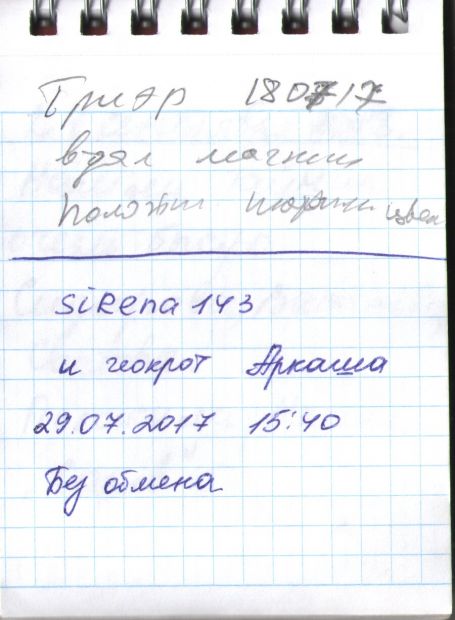 180717
взял магнит
положил
sirena 143
и геокрот Аркаша
29.07.2017 15:40
Без обмена